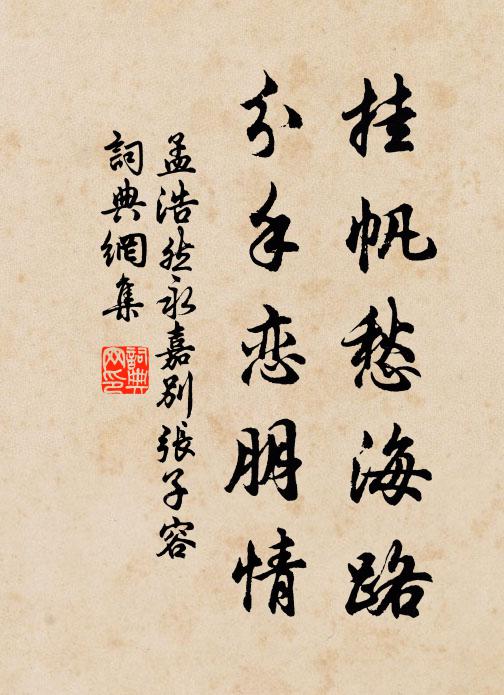 挂帆愁海路
分手恋朋情
孟浩然永嘉别張子容
詞典網集
詞典网印